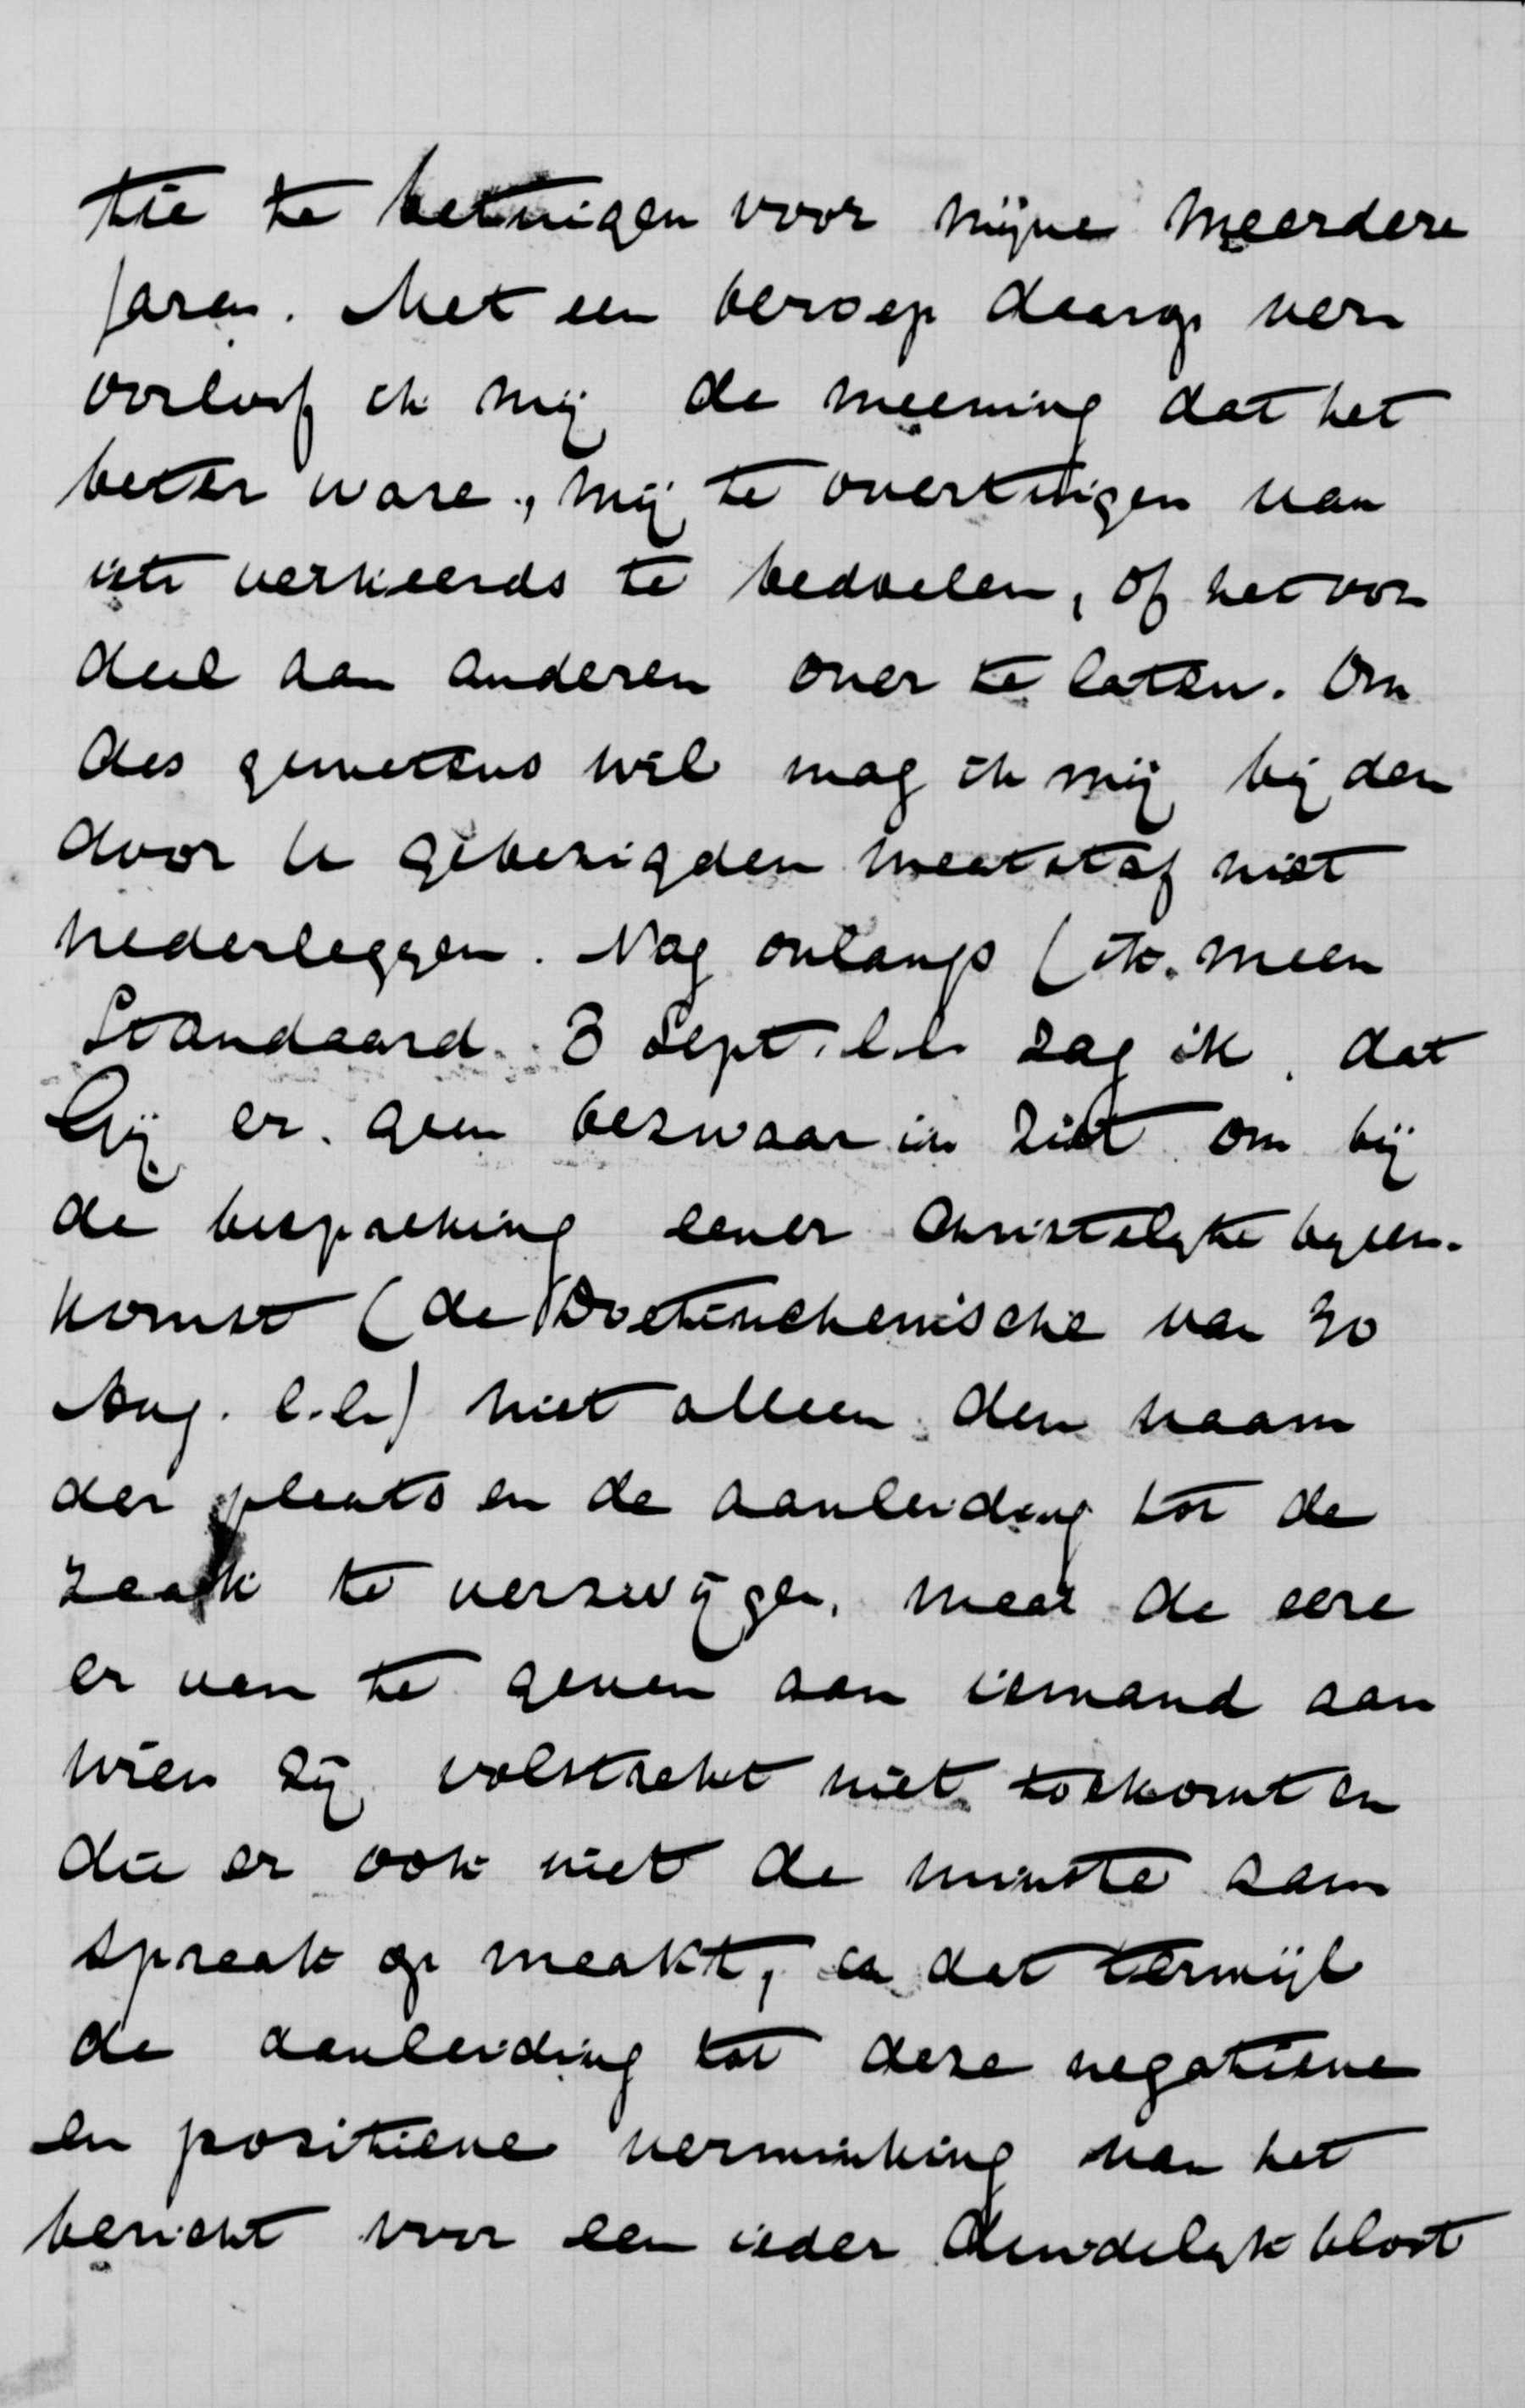 tie te betuigen voor mijne meerdere
jaren. Met een beroep daarop ver
oorloof ik mij de meening dat het
beter ware, mij te overtuigen van
iets verkeerds te bedoelen, of het oor
deel aan anderen over te laten. Om
des gewetens wil mag ik mij bij den
door U gebezigden maatstaf niet
nederleggen. Nog onlangs (ik meen
Standaard 3 Sept. l.l. zag ik, dat
Gij er geen bezwaar in ziet om bij
de bespreking eener Christelyke byeen-
komst (de Doetinchemsche van 30
Aug. l.l.) niet alleen den naam
der plaats en de aanleiding tot de
zaak te verzwijgen, maar de eere
er van te geven aan iemand aan
wien zij volstrekt niet toekomt en
die er ook niet de minste aan
spraak op maakt, en dat terwijl
de aanleiding tot deze negatieve
en positieve verminking van het
bericht voor een ieder duidelyk bloot